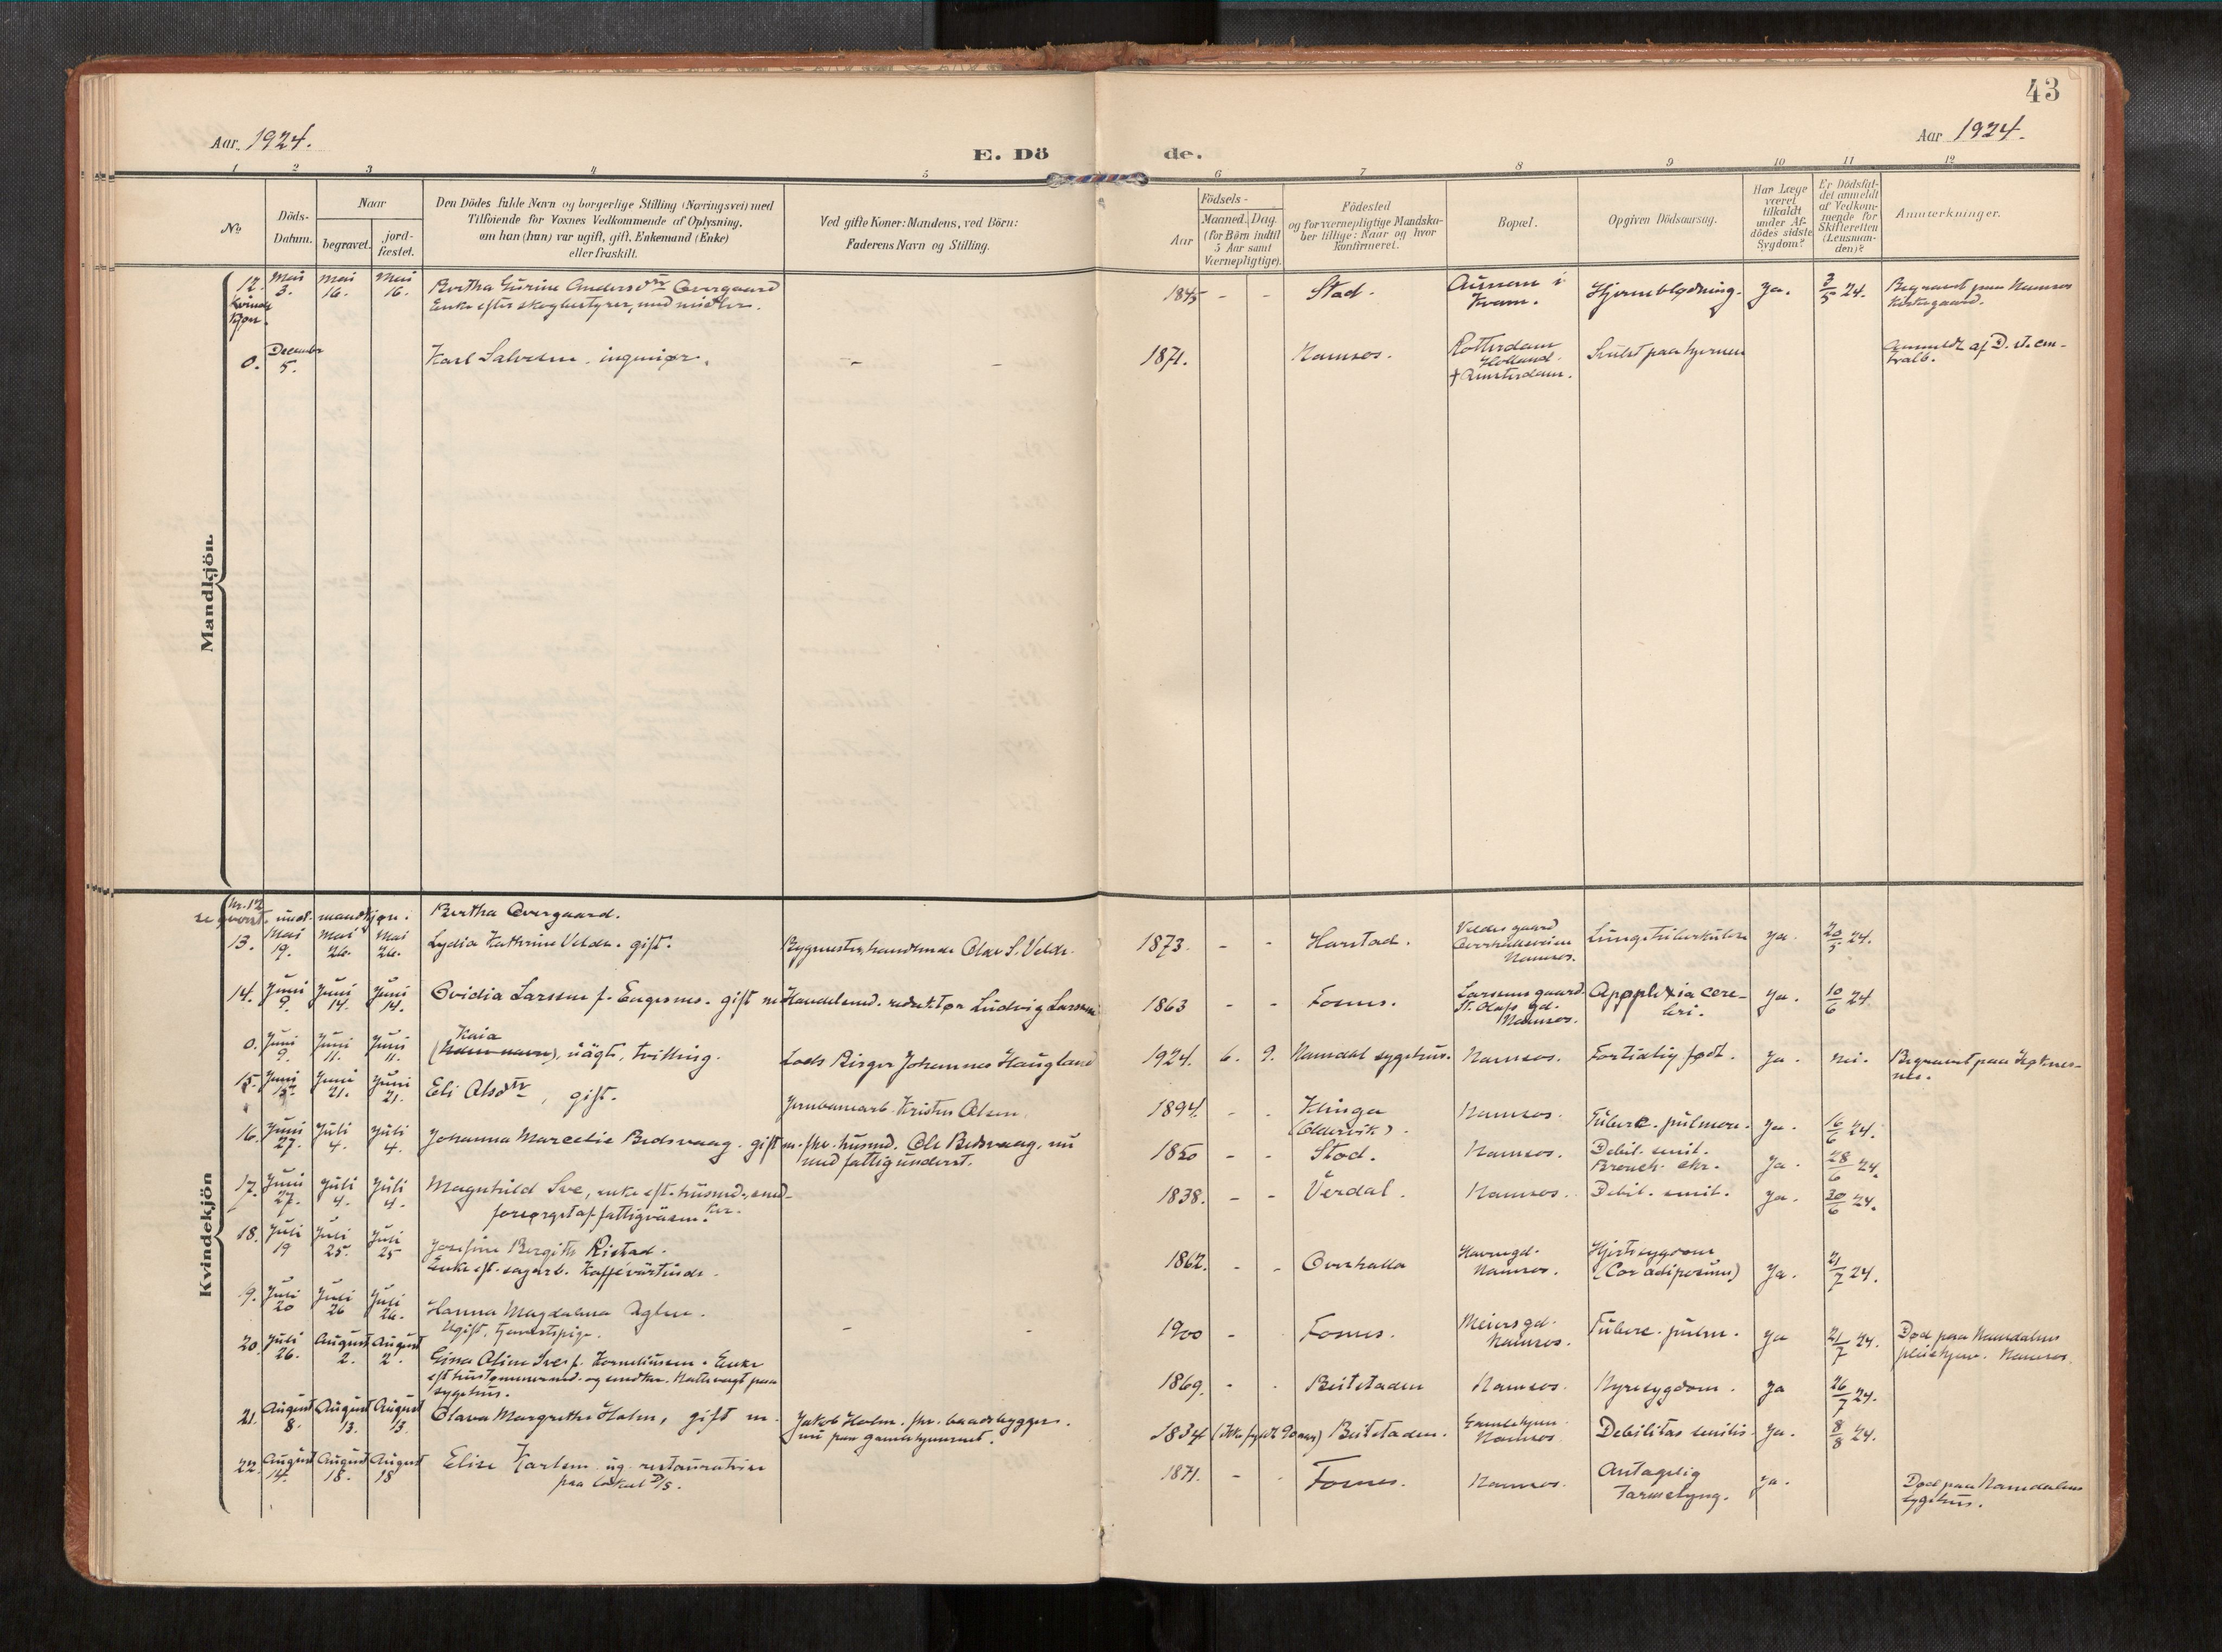 43
Aar 1924.
Aar 1924.
E. Dö de.
1 2 3 4 5 6 7 8 9 10 11 12
No
Döds-
Datum.
Naar
begravet.
jord-
fæstet.
Den Dödes fulde Navn og borgerlige Stilling (Næringsvei) med
Tilföiende for Voxnes Vedkommende af Oplysning.
om han (hun) var ugift, gift. Enkemand (Enke)
eller fraskilt.
Ved gifte Koner: Mandens, ved Börn:
Faderens Navn og Stilling.
Aar
Födsels-
Maaned. Dag.
(for Börn indtil
5 Aar samt
Værnepligtige).
Födested
og for værnepligtige Mandska-
ber tillige: Naar og hvor
konfirmeret.
Bopæl.
Opgiven Dödsaarsag.
Har Læge
været
tilkaldt
under Af-
dödes sidste
Sygdom?
Er Dödsfal-
det anmeldt
af Vedkom-
mende for
Skifteretten
(Lensman-
den)?
Anmærkninger.
Mandkjön.
12. Mai 3. Mai 16. Mai 16.
Kvinde
kjøn.
Bertha Gurine Andersdtr Overgaard
Enke efter skogbestyrer, med midler.
1845 - - Stad. i
Kvam. Hjerneblødning. Ja. 3/5 24. Begravet paa Namsos
kirkegaard.
0. December 5.
Karl Salvesen. ingeniør. - -
1871. Namsos. Rotterdam
Holland.
† Amsterdam. Svulst paa hjernen Anmeldt af D. st. cen-
tralb.
Kvindekjön
Nr. 12
se øverst. und. mandkjøn. Bertha Overgaard.
13. Mai 19. Mai 26. Mai 26. Lydia Kathrine Velde. gift. Bygmester, handlende Olav S. Velde. 1873. - - Harstad. Veldes gaard
Overhallsveien
Namsos. Lungetuberkulose ja. 20/5 24.
14. Juni 9. Juni 14. Juni 14. Ovidia Larssen f. Engesnes. gift m. Handelsmd. redaktør Ludvig Larssen 1863 - - Fosnes. Larssens gaard.
St. Olafs gd.
Namsos. Apoplexia cere-
bri. Ja. 10/6 24.
0. Juni 9. Juni 11. Juni 11. Kaia
(uden navn), uægte, tvilling. Lods Birger Johannes Haugland 1924. 6. 9. Namdal sygehus. Namsos. Fortidlig født. Ja. nei. Begravet paa
nes.
15. Juni 13. Juni 21. Juni 21. Eli Olsdtr, gift.
Jernbanearb. Kristen Olsen. 1894. - - Klinga
. Namsos. Tuberc. pulmon. Ja. 16/6 24.
16. Juni 27. Juli 4. Juli 4. Johanna Marcelie Budsvaag. gift m. fhv. husmd. Ole Budsvaag. nu
med fattigunderst. 1850 - - Stod. Namsos. Debil. senil.
Bronch. chr. Ja. 28/6 24.
17. Juni 27. Juli 4. Juli 4. Magnhild Sve, enke eft. husmd.,
forsørget af fattigvæsen. 1838. - - Verdal. Namsos. Debil. senil. Ja. 30/6 24.
18. Juli 19 Juli 25. Juli 25 Josefine Bergitte Ristad.
Enke eft. sagarb. Kaffevärtinde. 1862. - - Overhalla Havnegd.
Namsos. Hjertesygdom
(Cor adiposum) Ja. 21/7 24.
9. Juli 20 Juli 26 Juli 26. Hanna Magdalena Aglen.
Ugift, tjenestepige. - - 1900 - Fosnes. Meiersgd.
Namsos. Tuberc. pulm. Ja 21/7 24. Død paa Namdalens
pleiehjem. Namsos.
20. Juli 26. August 2. August 2. Gina Oline Sve f. Korneliussen. Enke
eft. hustømmermd. og snedker. Nattevagt paa
sygehus. 1869. - - Beitstaden Namsos. Nyresygdom. Ja 26/7 24.
21. August 8. August 13. August 13. Olava Margrethe Holm, gift m. Jakob Holm. fhv. baadbygger.
nu paa gamlehjemmet. 1834 (ikke fyldt 90 aar) Beitstaden. Gamlehjem.
Namsos. Debilitas senilis. Ja. 8/8 24.
22. August 14. August 18. August 18 Elise Karlsen ug. restauratrise
paa lokal D/S. 1871. - - Fosnes. Namsos. Antagelig
Tarmslyng. Ja. Død paa Namdalens
sygehus.